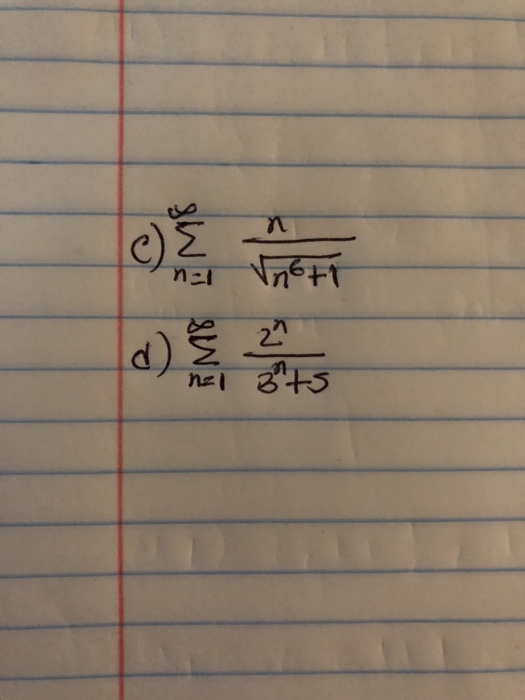 c) ∑_{n=1}^{∞} n/√(n⁶+1)
d) ∑_{n=1}^{∞} 2ⁿ/(3ⁿ+5)